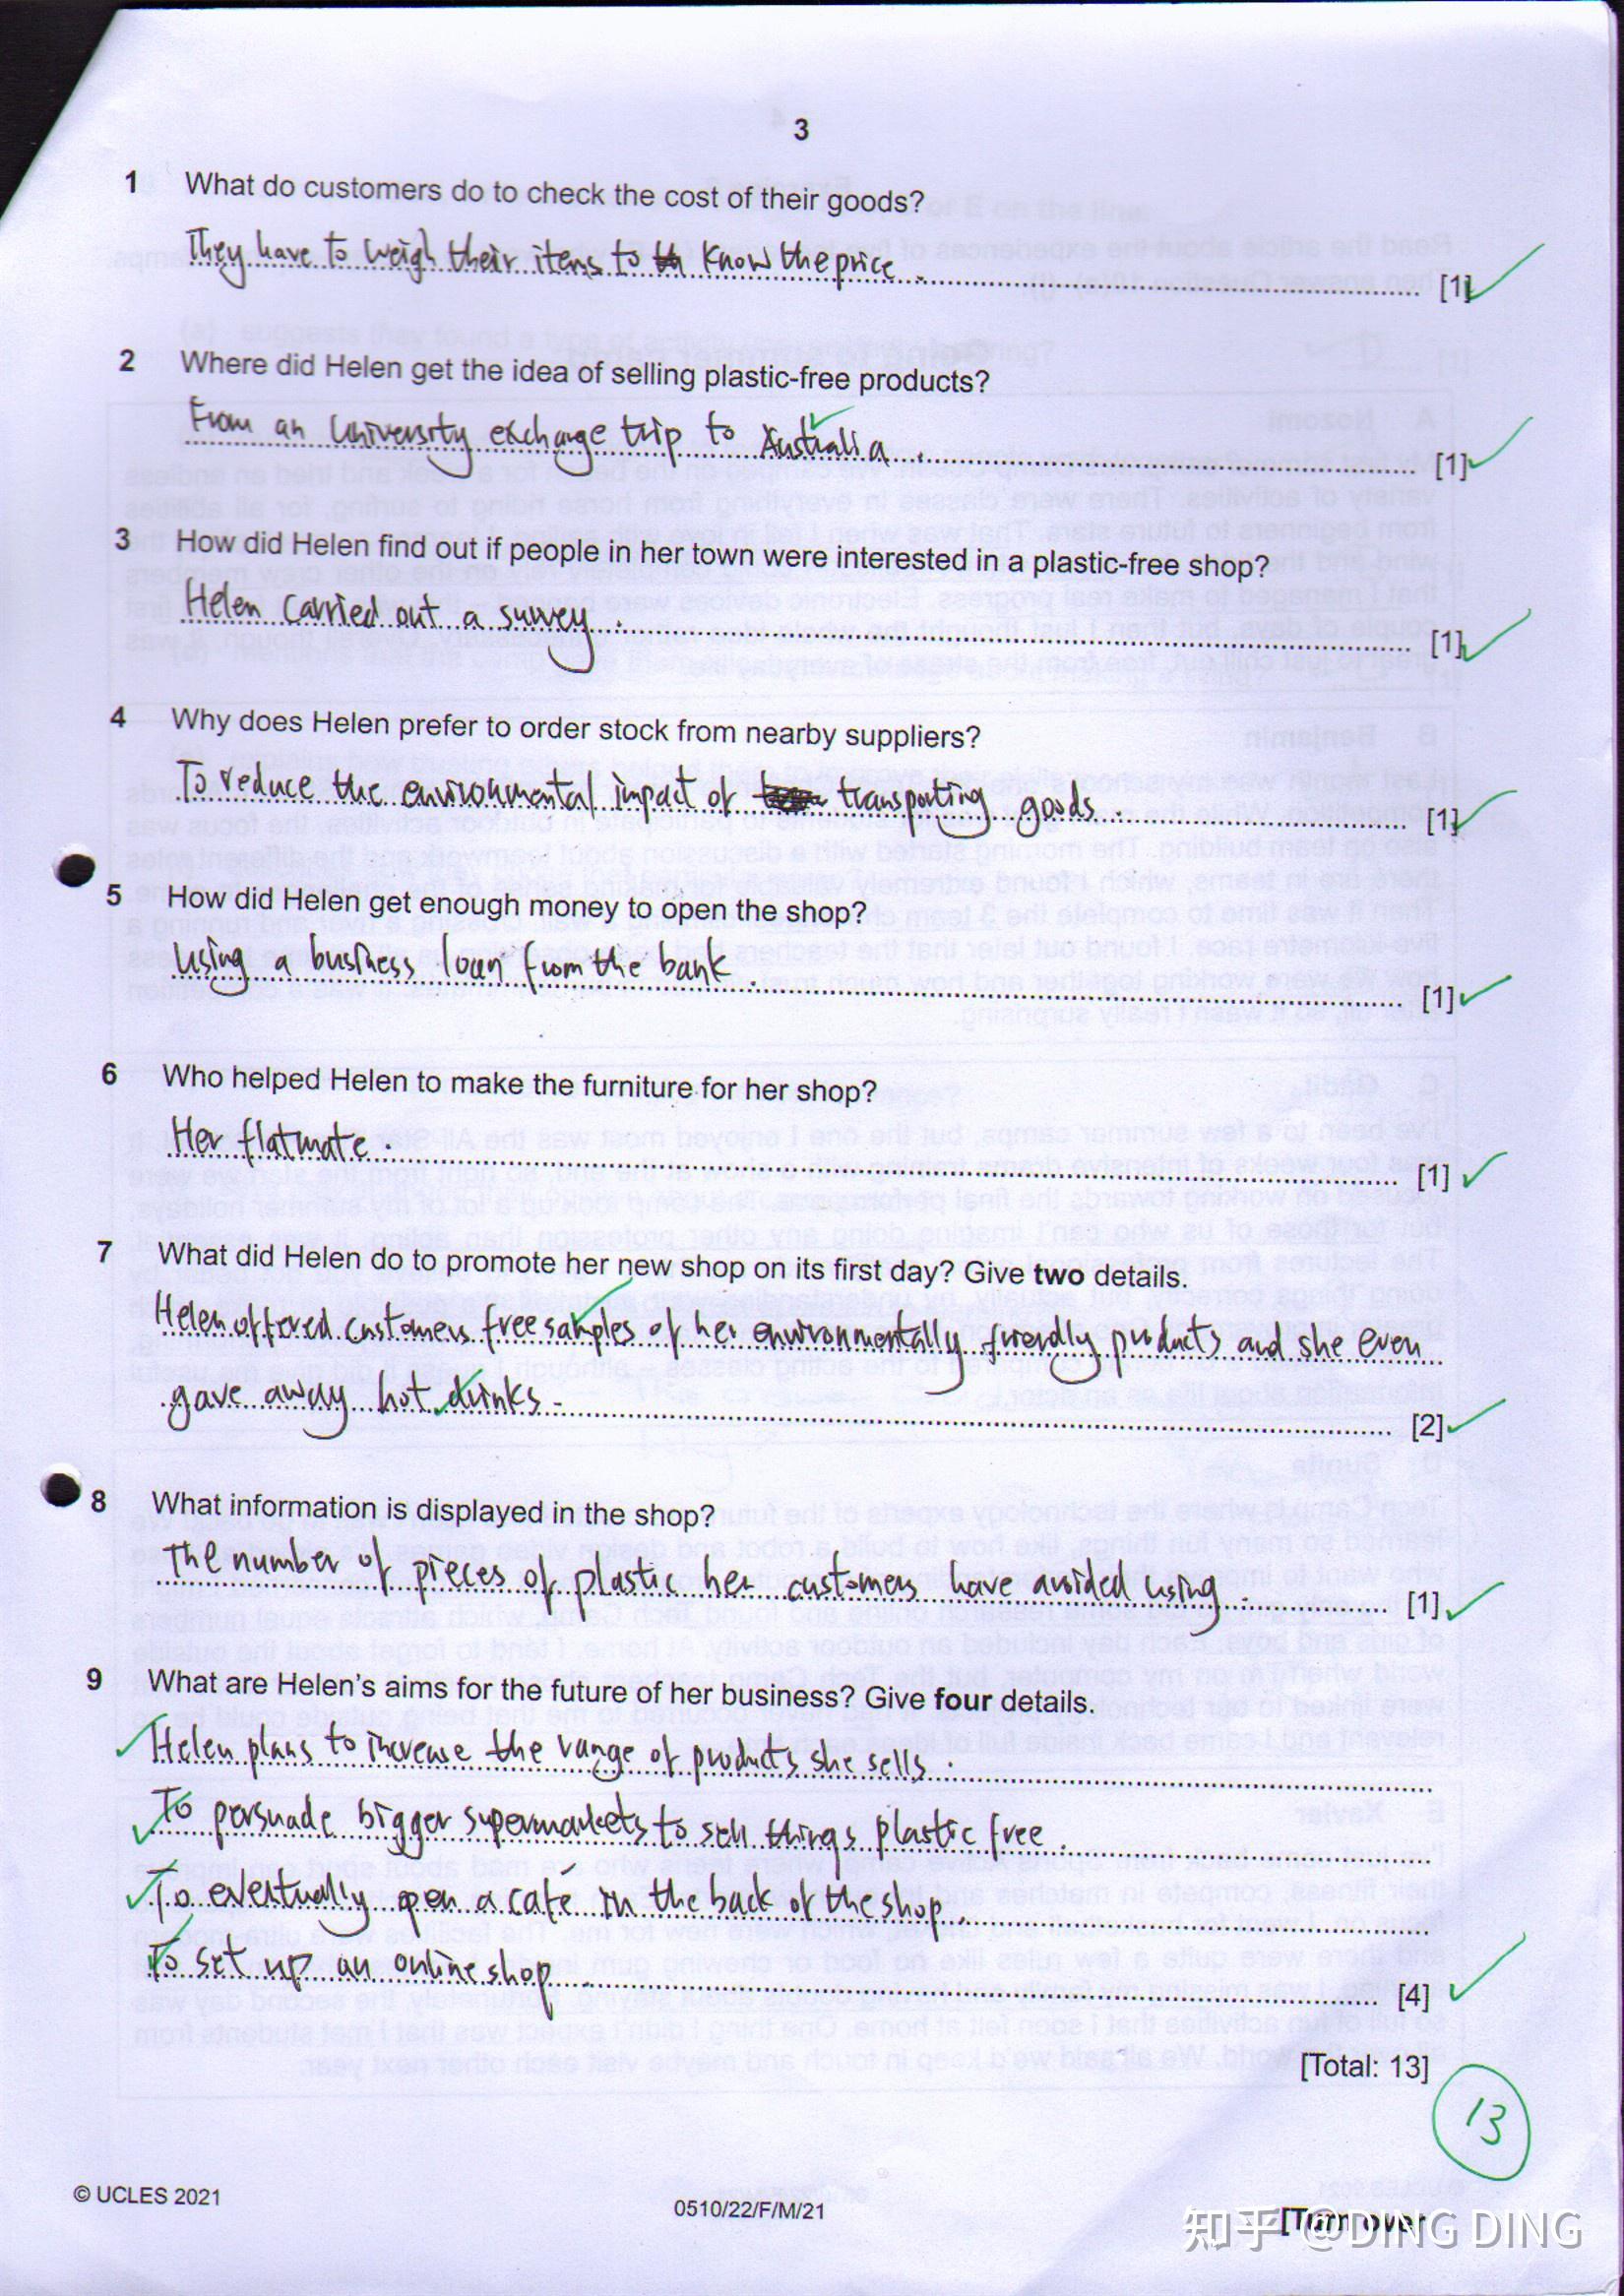 3
1 What do customers do to check the cost of their goods?
They have to weigh their items to know the price. [1]
2 Where did Helen get the idea of selling plastic-free products?
From an University exchange trip to Australia. [1]
3 How did Helen find out if people in her town were interested in a plastic-free shop?
Helen carried out a survey. [1]
4 Why does Helen prefer to order stock from nearby suppliers?
To reduce the environmental impact of transporting goods. [1]
5 How did Helen get enough money to open the shop?
Using a business loan from the bank. [1]
6 Who helped Helen to make the furniture for her shop?
Her flatmate. [1]
7 What did Helen do to promote her new shop on its first day? Give two details.
Helen offered customers free samples of her environmentally friendly products and she even
gave away hot drinks. [2]
8 What information is displayed in the shop?
The number of pieces of plastic her customers have avoided using. [1]
9 What are Helen's aims for the future of her business? Give four details.
Helen plans to increase the range of products she sells.
To persuade bigger supermarkets to sell things plastic free.
To eventually open a cafe in the back of the shop.
To set up an online shop. [4]
[Total: 13]
13
© UCLES 2021
0510/22/F/M/21
[Turn over
知乎 @DING DING